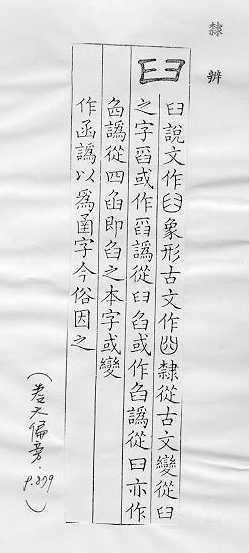 隸辨
臼
臼說文作臼象形古文作隸從古文變從臼
之字舀或作舀譌從臼臽或作臽譌從曰亦作
譌從四臽即臽之本字或變
作函譌以爲臿字今俗因之
(卷六偏旁．P.879)